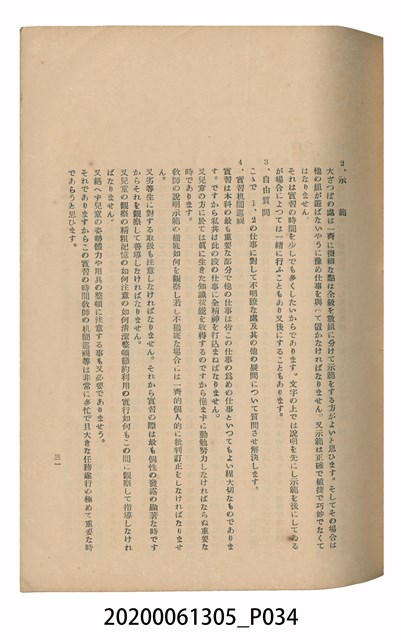 2、示範
大ざつぱの處は一齊に微細な點は全級を數組に分けて示範をする方がよいと思ひます。そしてその場合は
他の組が遊ばないやうに豫め仕事を與へて置かなければなりません。又示範は正確で敏捷で巧妙でなくて
はなりません。
それは實習の時間を少しでも多くしたいからであります。文字の上では說明を先にし示範を後にしてゐる
が場合によつては一緒に行ふこともあり又後にすることもあります。
3、自由質問
こゝで1、2の仕事に對して不明瞭な處及其の他の疑問について質問させ解決します。
4、實習机間巡視
實習は本科の最も重要な部分で他の仕事は皆この仕事の爲めの仕事といつてもよい程大切なものでありま
す。ですから私共は此の段の仕事に全精神を打込まねばなりません。
又兒童の方に於ては眞に生きた知識技能を收得するのですから倦まずに勤勉努力しなければならぬ重要な
時であります。
敎師の說明示範の徹底如何を觀察し若し不徹底な場合には一齊的個人的に批判訂正をしなければなりませ
ん。
又劣等生に對する取扱も注意しなければなりません。それから實習の際は最も個性の發露の顯著な時です
からそれを觀察して善導しなければなりません。
又兒童の觀察の精粗記憶の如何注意の如何淸潔整頓節約利用の實行如何もこの間に觀察して指導しなけれ
ばなりません。
又絕へず兒童の姿勢體力や用具の整頓に注意する事も又必要でありませう。
それでありますからこの實習の時間敎師の机間巡視等は非常に多忙で且大きな任務遂行の極めて重要な時
であらうと思ひます。
三一
20200061305_P034